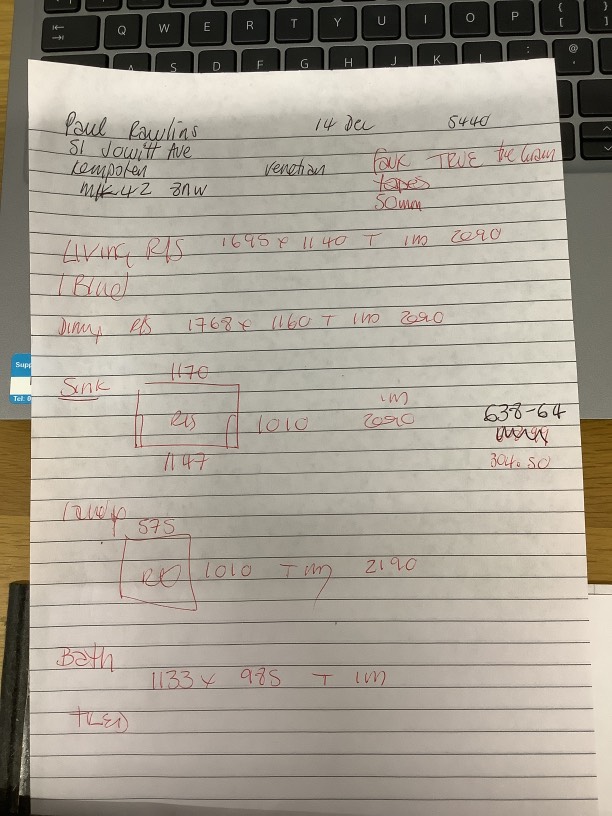 Q W E R T Y U I O P
A S D F G H J K L
Paul Rawlins 14 Dec 5440
51 Jowitt Ave
Kempston Venetian Faux TRUE
MK42 8NW tapes
50mm
Living R/S 1695 x 1140 T 1m 2090
R/S 1768 x 1160 T 1m 2090
Supp
Tel: 0
1170
Sink
R/S 1010 1m 2090 638-64
1147 304.50
575
1010 T 1m 2190
Bath
1133 x 985 T 1m